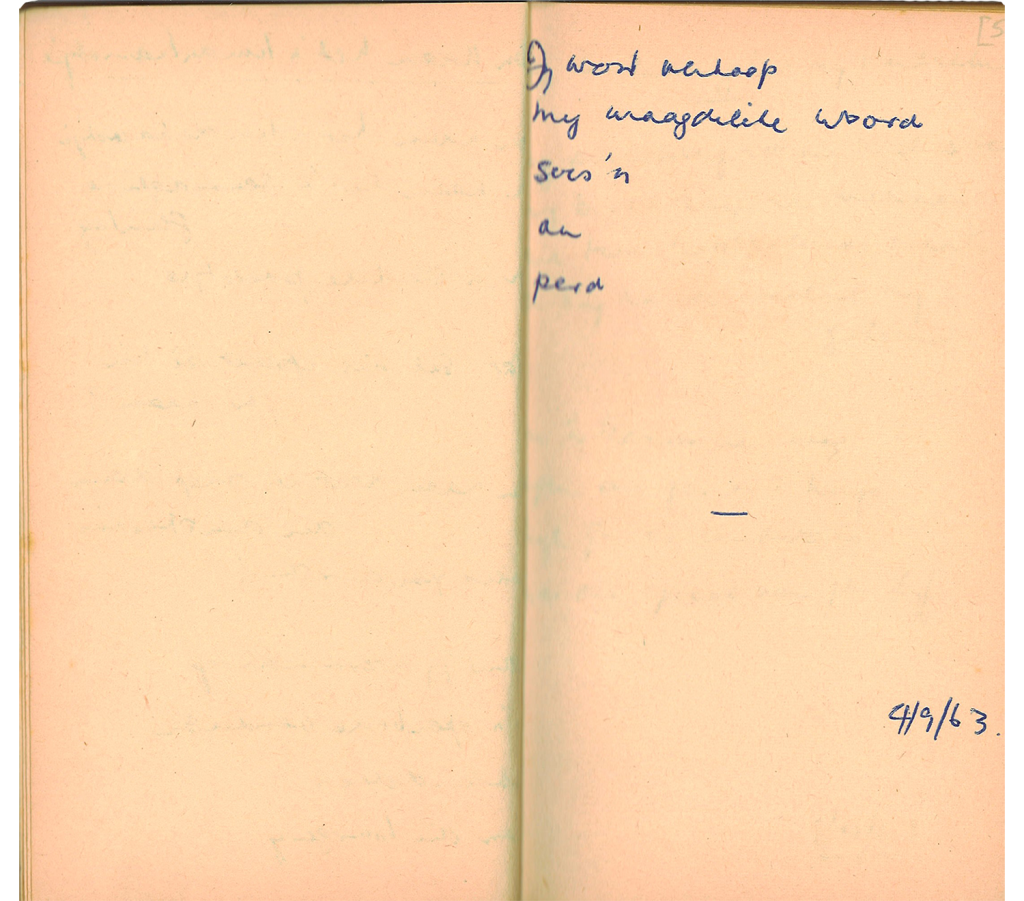 Jy word verkoop
my maagdelike woord
soos 'n
ou
perd
—
4/9/63.